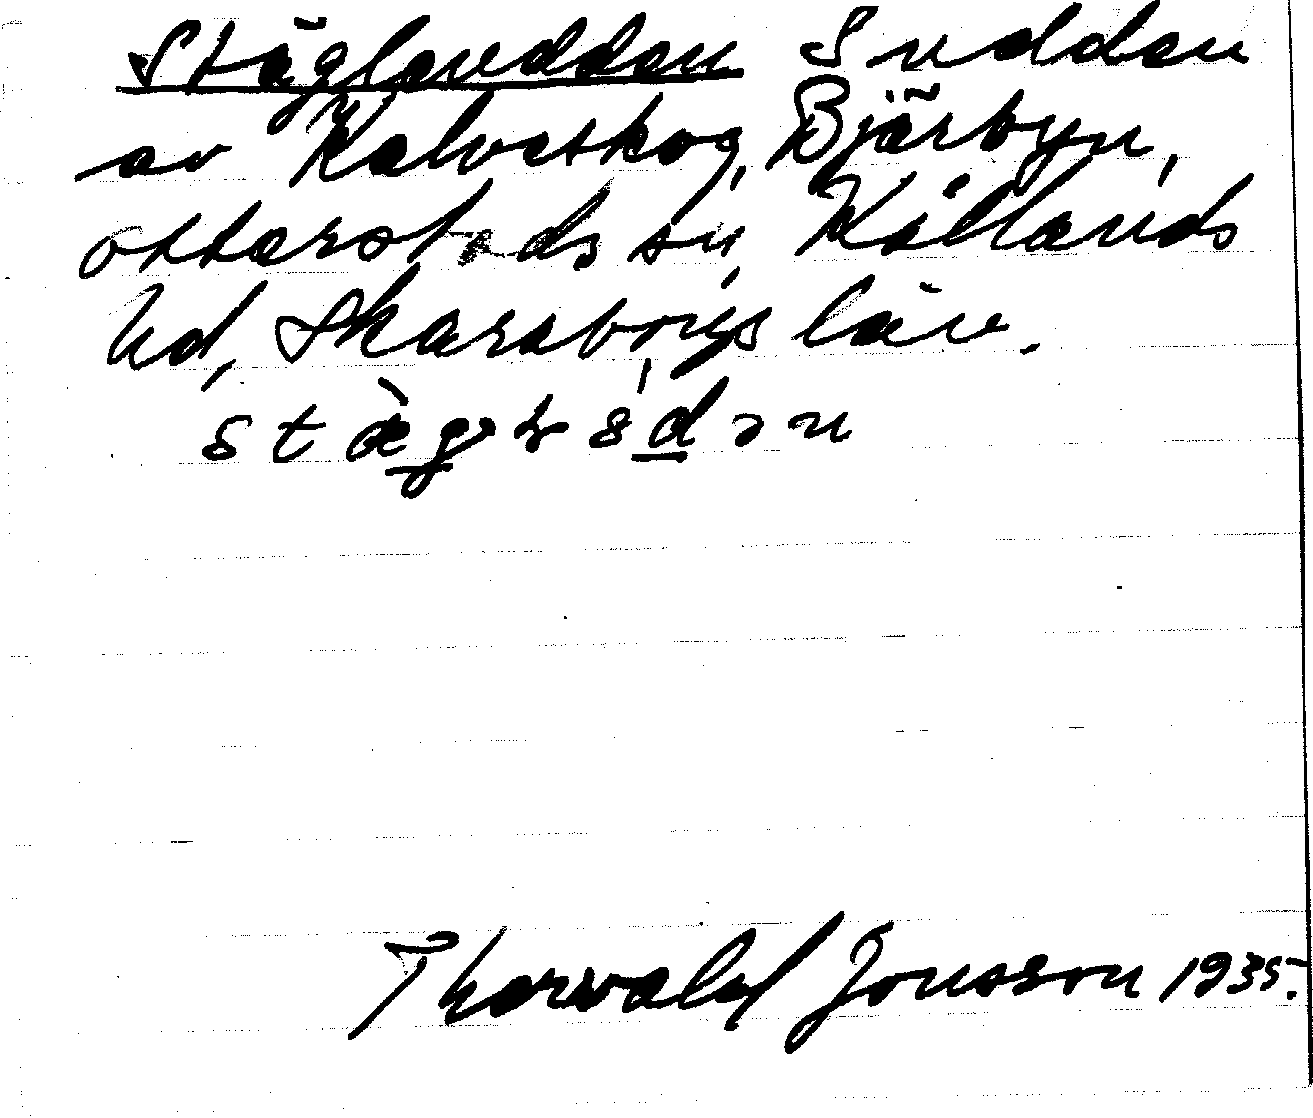 Stäglauddan S uddan
av Kalvaskog, Bjärbyn,
Otterstads sn, Kållands
hd, Skaraborgs län.
Thorvald Jonsson 1935.